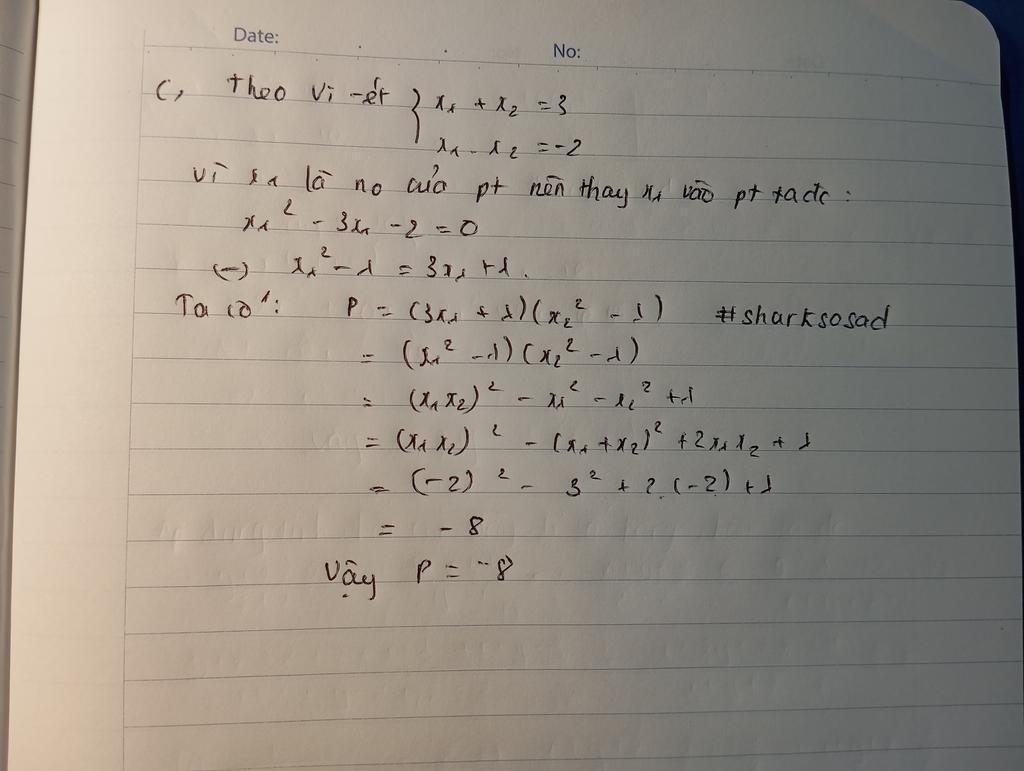 Date: No:
c, theo vi-ét { x₁ + x₂ = 3
x₁ . x₂ = -2
vì x₁ là no của pt nên thay x₁ vào pt ta đc :
x₁² - 3x₁ - 2 = 0
(=) x₁² - 1 = 3x₁ + 1.
Ta có : P = (3x₁ + 1)(x₂² - 1) #sharksosad
= (x₁² - 1)(x₂² - 1)
= (x₁x₂)² - x₁² - x₂² + 1
= (x₁x₂)² - (x₁ + x₂)² + 2x₁x₂ + 1
= (-2)² - 3² + 2.(-2) + 1
= - 8
Vậy P = -8